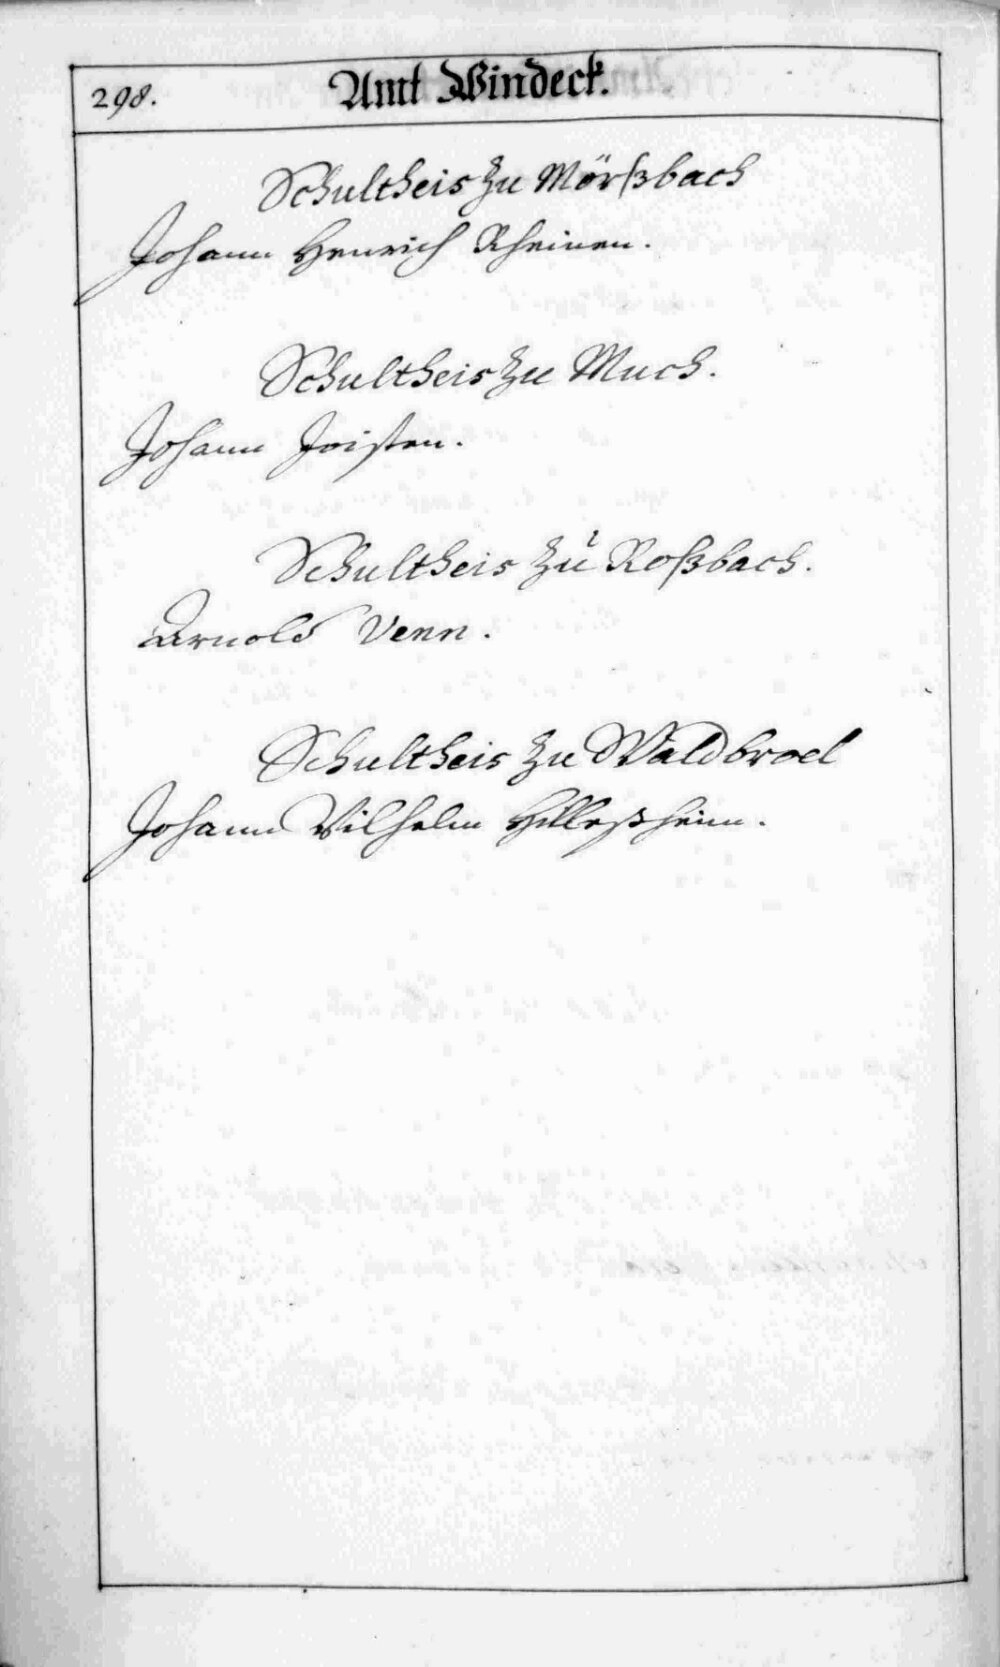 298.
Amt Windeck.
Schultheis zu Mörßbach
Johann Henrich Rheinen.
Schultheis zu Much.
Johann Joisten.
Schultheis zu Roßbach.
Arnold Venn.
Schultheis zu Waldbroel
Johann Wilhelm Hilleßheim.